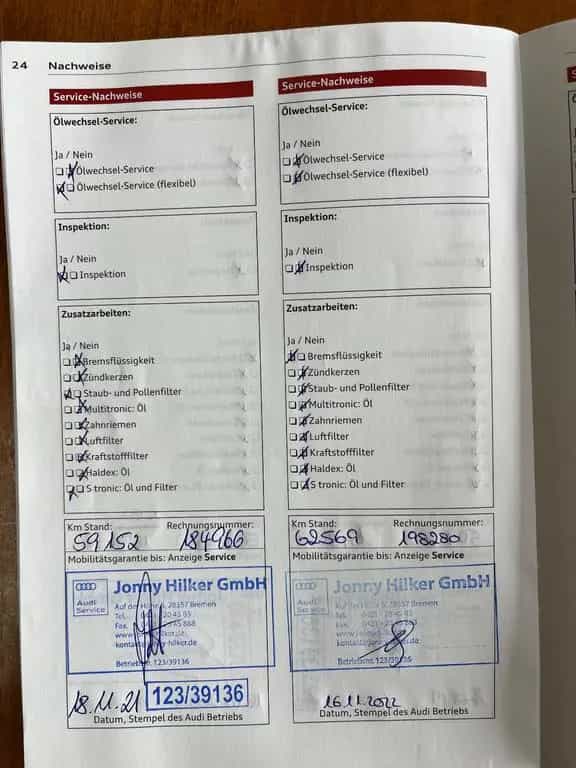 24 Nachweise
Service-Nachweise
Ölwechsel-Service:
Ja / Nein
Ölwechsel-Service
Ölwechsel-Service (flexibel)
Inspektion:
Ja / Nein
Inspektion
Zusatzarbeiten:
Ja / Nein
Bremsflüssigkeit
Zündkerzen
Staub- und Pollenfilter
Multitronic: Öl
Zahnriemen
Luftfilter
Kraftstofffilter
Haldex: Öl
S tronic: Öl und Filter
Km Stand: Rechnungsnummer:
59152 184966
Mobilitätsgarantie bis: Anzeige Service
Jonny Hilker GmbH
Audi
Service
28157 Bremen
Tel.
Fax.
Betriebsnr. 123/39136
18.11.21 123/39136
Datum, Stempel des Audi Betriebs
Service-Nachweise
Ölwechsel-Service:
Ja / Nein
Ölwechsel-Service
Ölwechsel-Service (flexibel)
Inspektion:
Ja / Nein
Inspektion
Zusatzarbeiten:
Ja / Nein
Bremsflüssigkeit
Zündkerzen
Staub- und Pollenfilter
Multitronic: Öl
Zahnriemen
Luftfilter
Kraftstofffilter
Haldex: Öl
S tronic: Öl und Filter
Km Stand: Rechnungsnummer:
62569 198280
Mobilitätsgarantie bis: Anzeige Service
Jonny Hilker GmbH
Audi
Service
28157 Bremen
Tel.
Fax.
Betriebsnr. 123/39136
16.11.2022
Datum, Stempel des Audi Betriebs